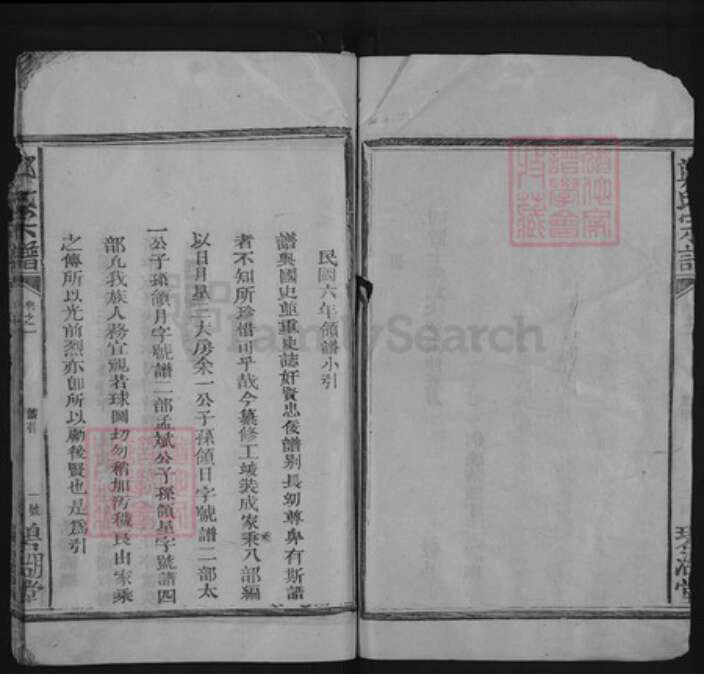 民國六年領譜小引
譜與國史並重史誌奸賢忠佞譜别長幼尊卑有斯譜
者不知所珍惜可乎哉今纂修工竣裝成家乘八部編
以日月星三大房朶一公子孫領日字號譜二部太
一公子孫領月字號譜二部孟斌公子孫領星字號譜四
部凡我族人務宜視若球圖切勿稍加汚穢良由家乘
之傳所以光前烈亦即所以勵後賢也是爲引
宗譜
卷之一
譜引
一號
碧湖堂
鄭氏宗譜
FamilySearch